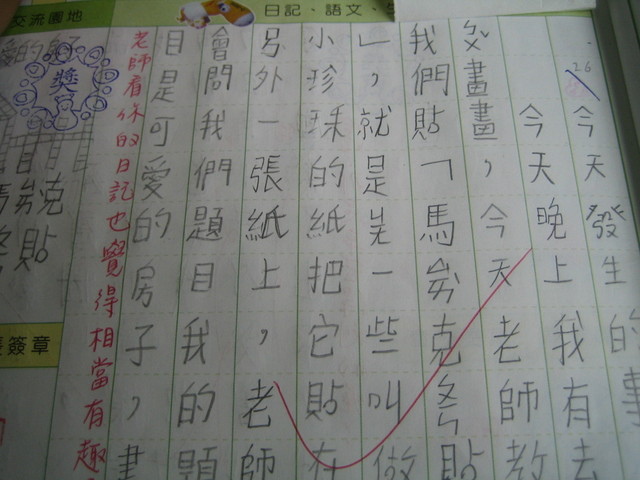 交流園地
日記、語文、
26
今天發生的事
今天晚上我有去
畫畫，今天老師教
我們貼「馬 克 貼
」，就是先一些叫做
小珍珠的紙把它貼在
另外一張紙上，老師
會問我們題目我的題
目是可愛的房子，畫
老師看你的日記也覺得相當有趣
獎
克貼
簽章